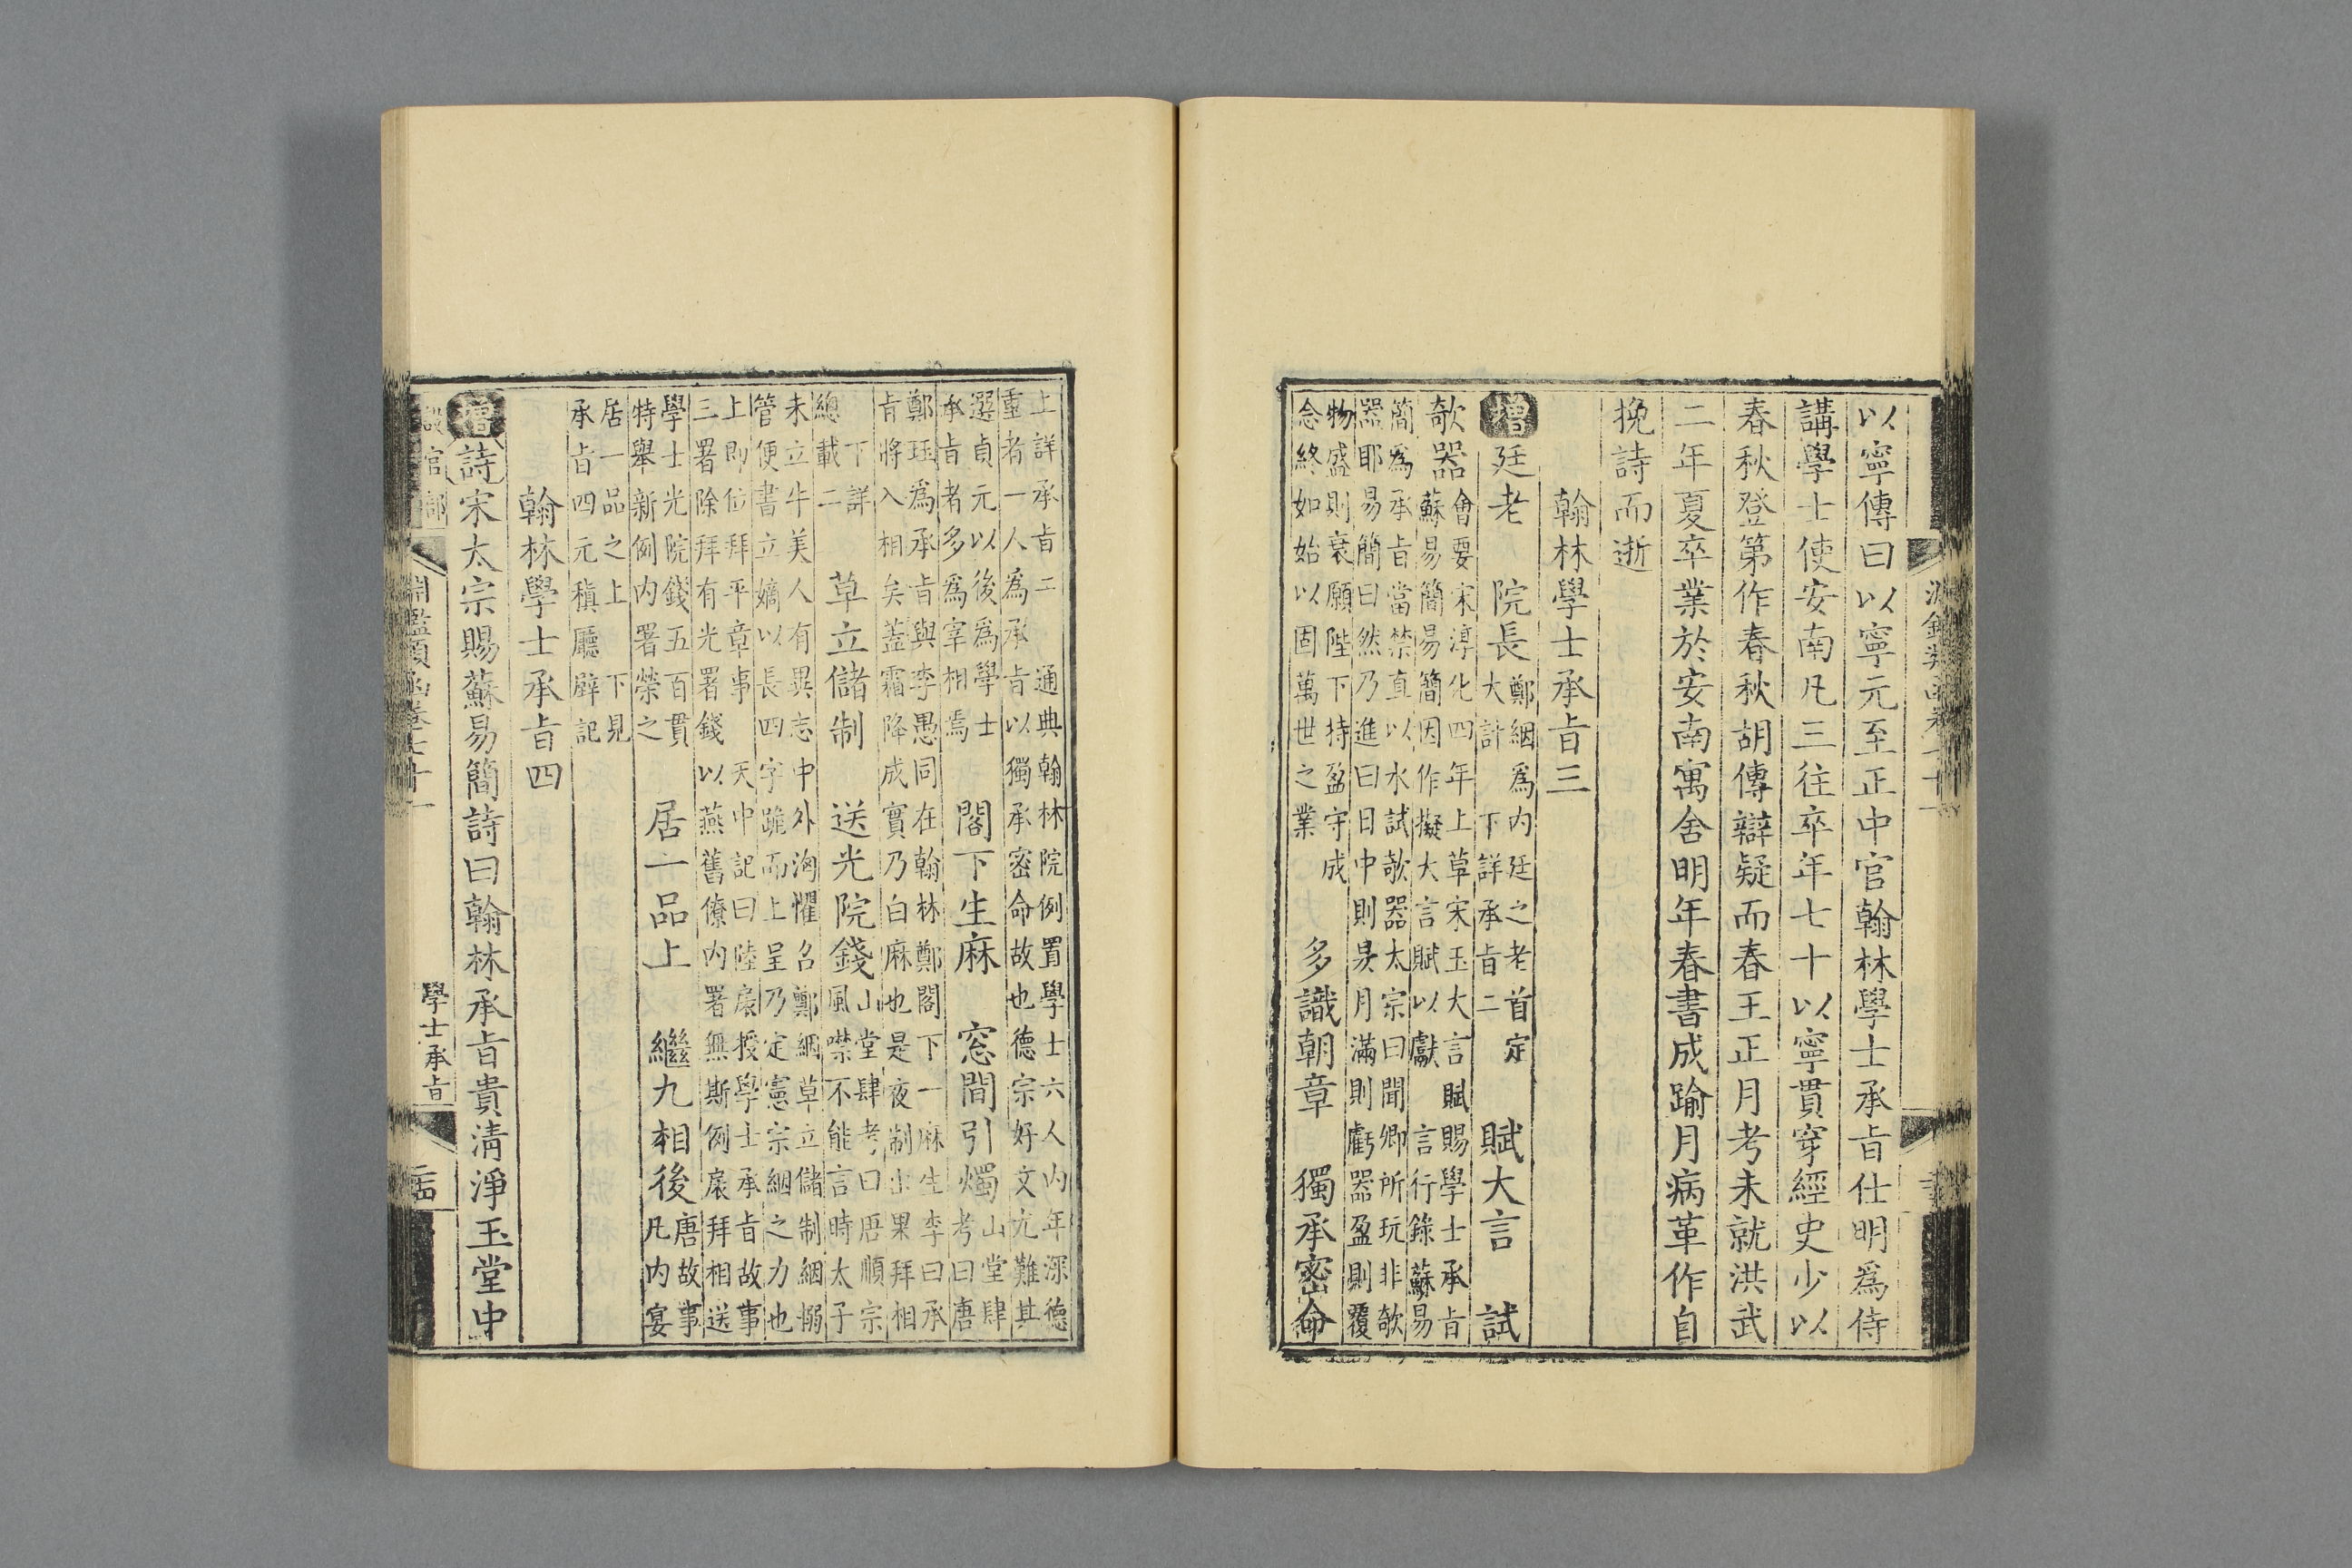 以寧傳曰以寧元至正中官翰林學士承旨仕明爲侍
講學士使安南凡三往卒年七十以寧貫穿經史少以
春秋登第作春秋胡傳辯疑而春王正月考未就洪武
二年夏卒業於安南寓舍明年春書成踰月病革作自
挽詩而逝
翰林學士承旨三
增廷老 院長 鄭絪爲内廷之老首定
大計 下詳承旨二 賦大言 試
欹器 會要宋淳化四年上草宋玉大言賦賜學士承旨
蘇易簡易簡因作擬大言賦以獻 言行錄蘇易
簡爲承旨當禁直以水試欹器太宗曰聞卿所玩非欹
器耶易簡曰然乃進曰日中則昃月滿則虧器盈則覆
物盛則衰願陛下持盈守成
念終如始以固萬世之業 多識朝章 獨承密命
上詳承旨二 通典翰林院例置學士六人内年深德
重者一人爲承旨以獨承密命故也德宗好文尤難其
選貞元以後爲學士
承旨者多爲宰相焉 閣下生麻 窓間引燭 山堂肆
考曰唐
鄭珏爲承旨與李愚同在翰林鄭閣下一麻生李曰承
旨將入相矣蓋霜降成實乃白麻也是夜制出果拜相
下詳
總載二 草立儲制 送光院錢 山堂肆考曰唐順宗
風噤不能言時太子
未立牛美人有異志中外洶懼召鄭絪草立儲制絪搦
管便書立嫡以長四字跪而上呈乃定憲宗絪之力也
上即位拜平章事 天中記曰陸扆授學士承旨故事
三署除拜有光署錢以燕舊僚内署無斯例扆拜相送
學士光院錢五百貫
特舉新例内署榮之 居一品上 繼九相後 唐故事
凡内宴
居一品之上 下見
承旨四元稹廳壁記
翰林學士承旨四
增詩宋太宗賜蘇易簡詩曰翰林承旨貴清淨玉堂中
淵鑑類函卷七十一
學士承旨